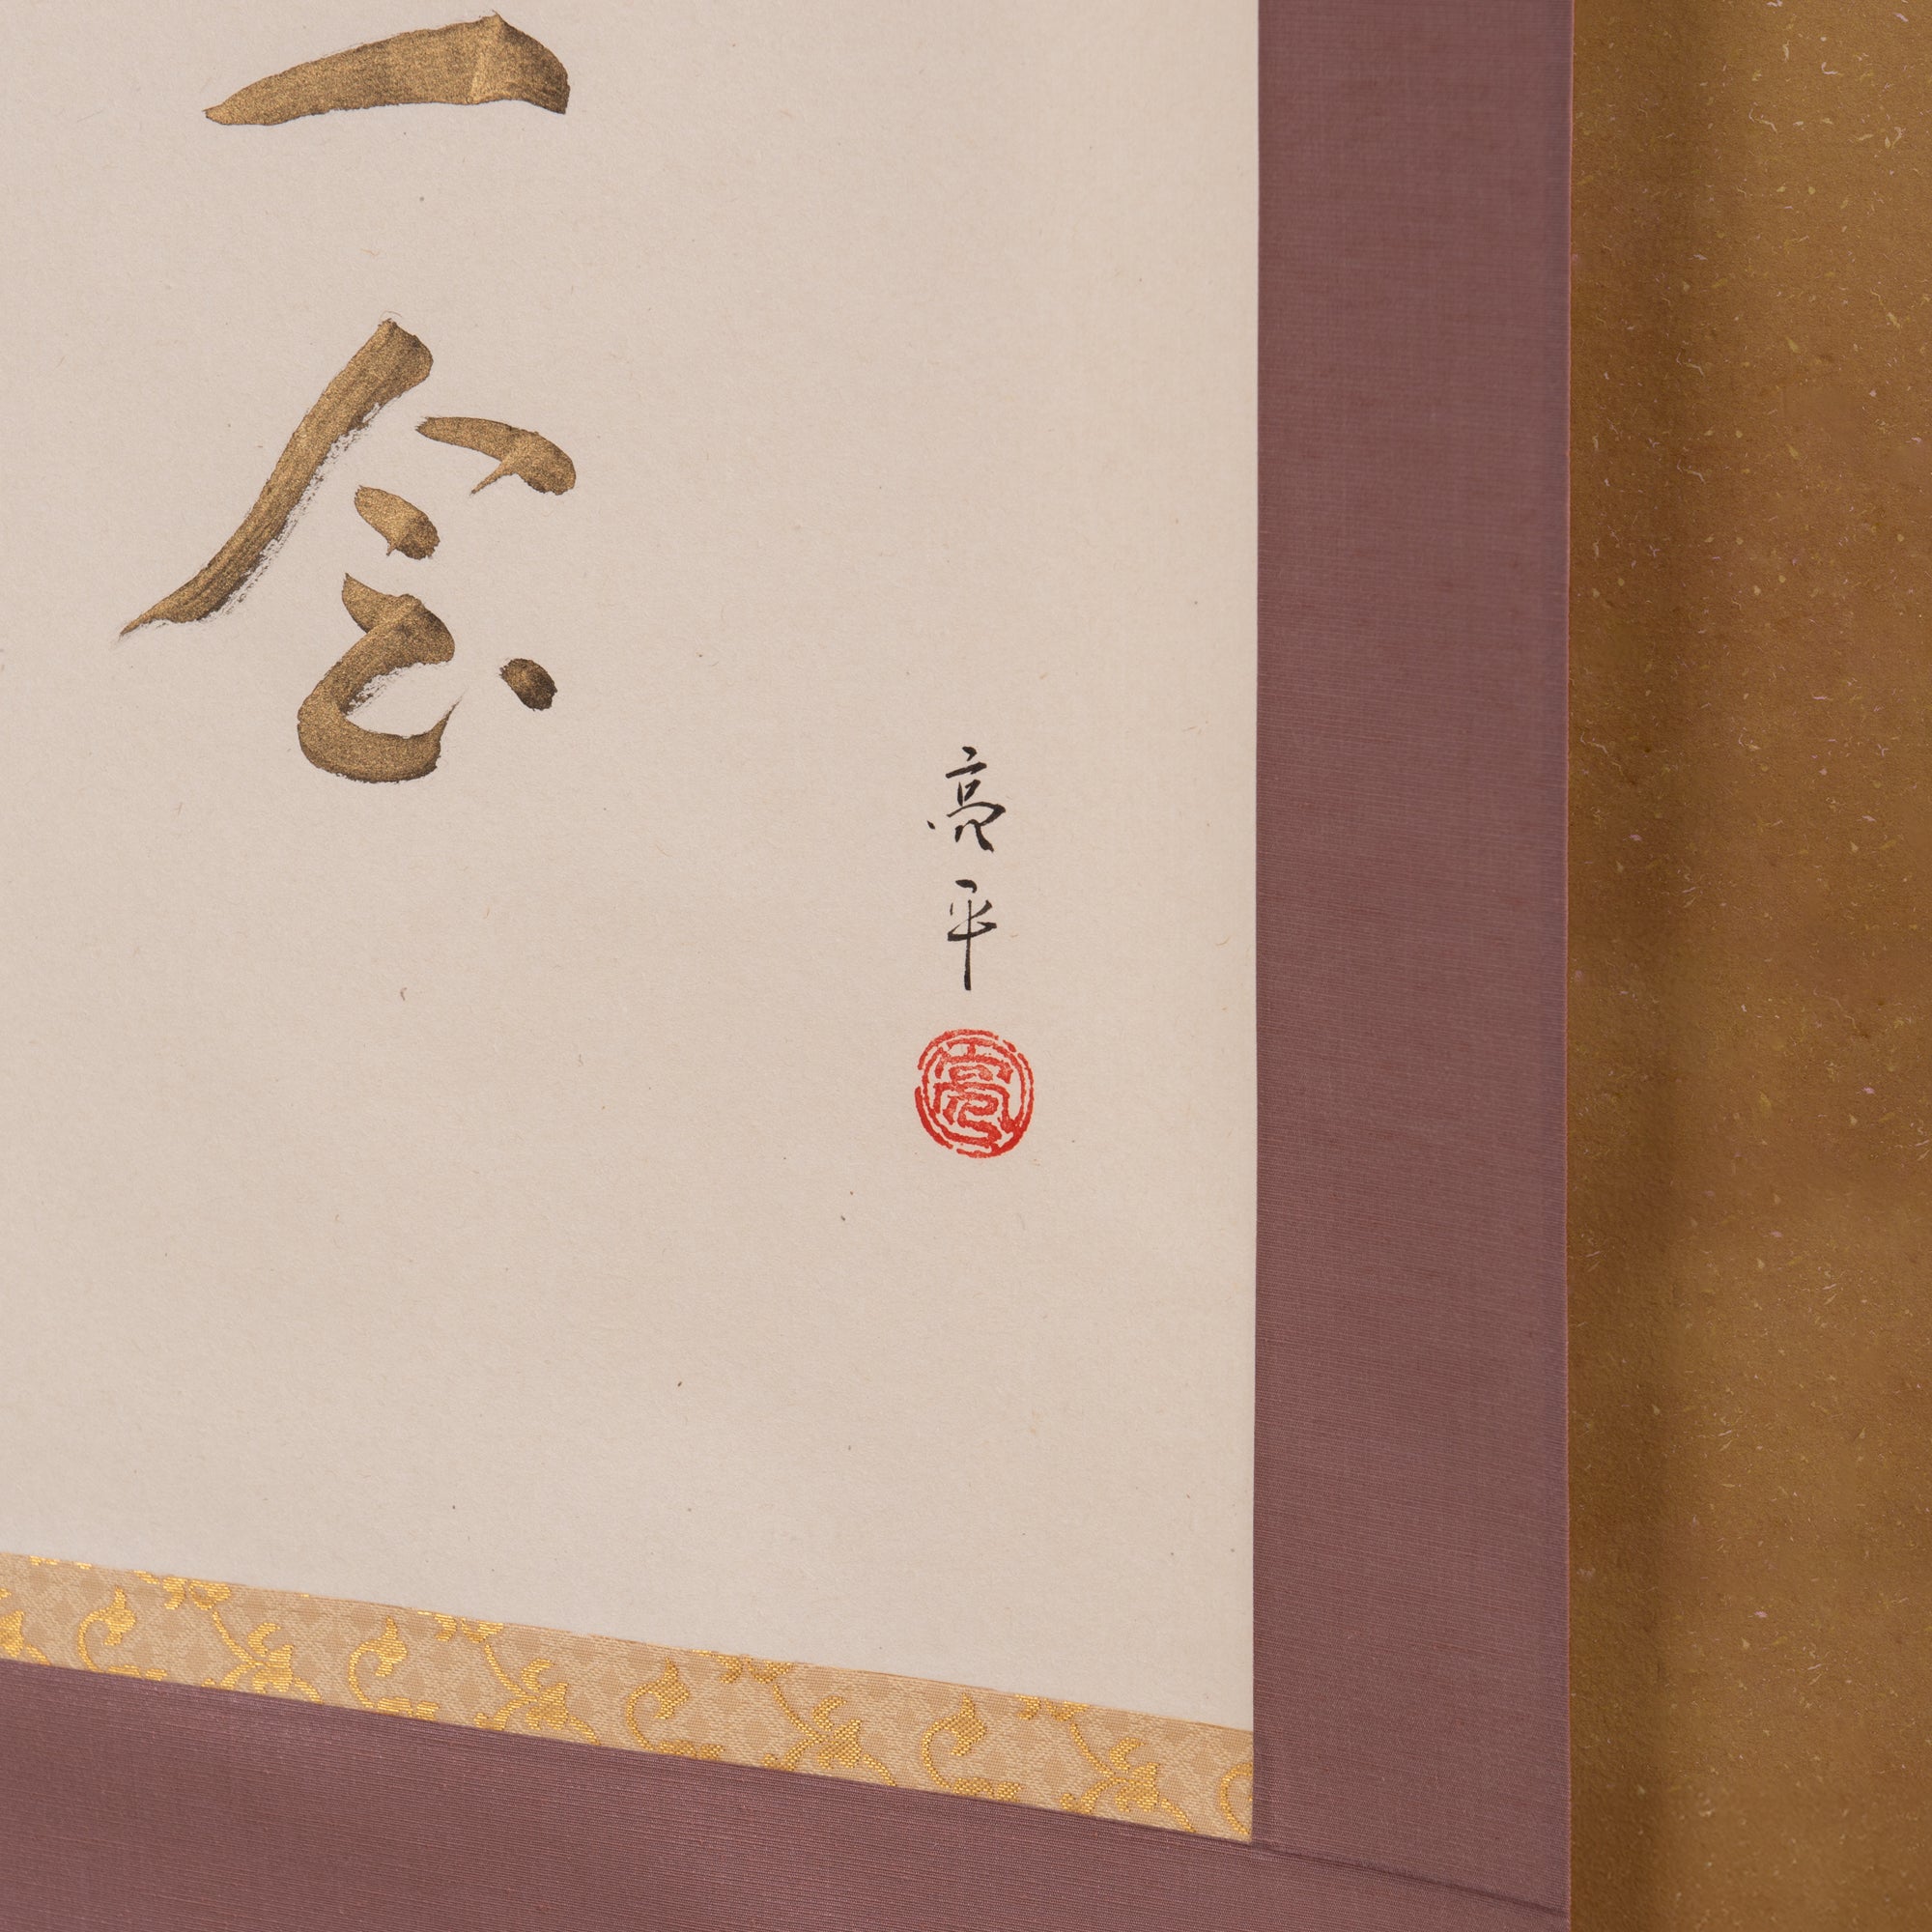 一会
亮平
亮